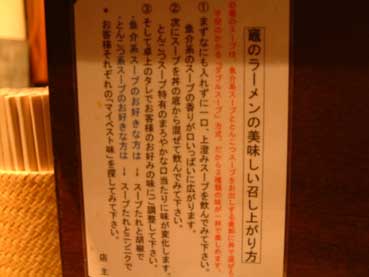 蔵のラーメンの美味しい召し上がり方
①まずなにも入れずに一口、上澄みスープを飲んでみて下さい。
魚介系のスープの香りが口いっぱいに広がります。
②次にスープを丼の底から混ぜて飲んでみて下さい。
とんこつスープ特有のまろやかな口当たりに味が変化します。
③そして卓上のタレでお客様のお好みの味にご調整して下さい。
・魚介系スープのお好きな方は → スープたれと胡椒で
・とんこつ系スープのお好きな方は → スープたれとニンニクで
● お客様それぞれの「マイベスト味」を探してみて下さい。
店 主